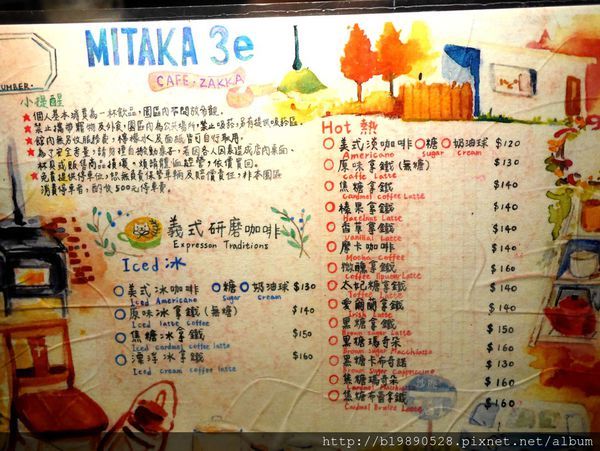 MITAKA 3e
CAFE. ZAKKA
UMBER.
小提醒
★個人基本消費為一杯飲品,園區內不開放參觀。
★禁止攜帶寵物及外食,園區內為公共場所,禁止吸菸,另有提供吸菸區.
★館內無另收服務費,檸檬水及面紙皆自行取用.
消費停車者,酌收500元停車費.
義式研磨咖啡
Expresson Traditions
Iced 冰
義式冰咖啡 糖 奶油球 $130
Iced Americano sugar cream
原味冰拿鐵(無糖) $140
Iced latte coffee
焦糖冰拿鐵 $150
Iced caramel coffee latte
漂浮冰拿鐵 $160
Iced cream coffee latte
Hot 熱
美式淡咖啡 糖 奶油球 $120
Americano sugar cream
原味拿鐵(無糖) $130
Caffe Latte
焦糖拿鐵 $140
Caramel coffee Latte
榛果拿鐵 $140
Hazelnut Latte
香草拿鐵 $140
Vanillai Latte
摩卡咖啡 $140
Mocha coffee
微醺拿鐵 $160
Coffee liqueur Latte
太妃糖拿鐵 $140
Toffee Latte
愛爾蘭拿鐵 $140
Irish Latte
黑糖拿鐵 $150
Brown sugar Latte
黑糖瑪奇朵 $160
Brown sugar Macchiato
黑糖卡布奇諾 $130
Brown sugar Cappuccino
焦糖瑪奇朵 $160
Caramel Macchiato
焦糖布蕾拿鐵 $160
Caramel Brulee Latte
http://b19890528.pixnet.net/album